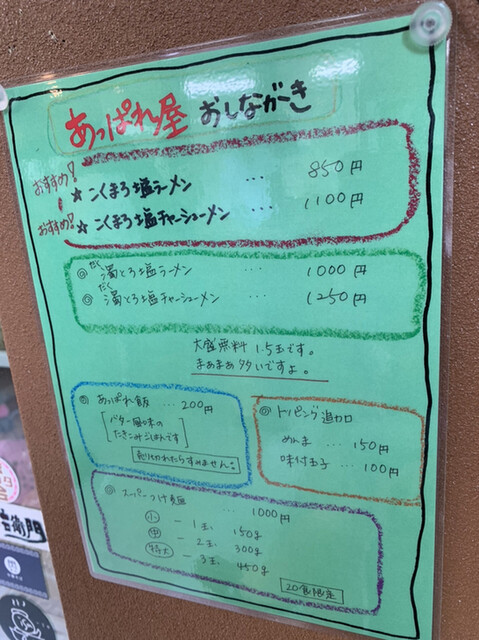 あっぱれ屋 おしながき
おすすめ! ☆ こくまろ塩ラーメン ... 850円
おすすめ! ☆ こくまろ塩チャーシューメン ... 1100円
◎ 濁とろ塩ラーメン ... 1000円
だく
◎ 濁とろ塩チャーシューメン ... 1250円
だく
大盛無料 1.5玉です。
まぁまぁ多いですよ。
◎ あっぱれ飯 ... 200円
バター風味の
たきこみごはんです
売り切れたらすみません。
◎ トッピング追加
めんま ... 150円
味付玉子 ... 100円
◎ スーパーつけ麺 ... 1000円
小 - 1玉 150g
中 - 2玉 300g
特大 - 3玉 450g
20食限定
右衛門